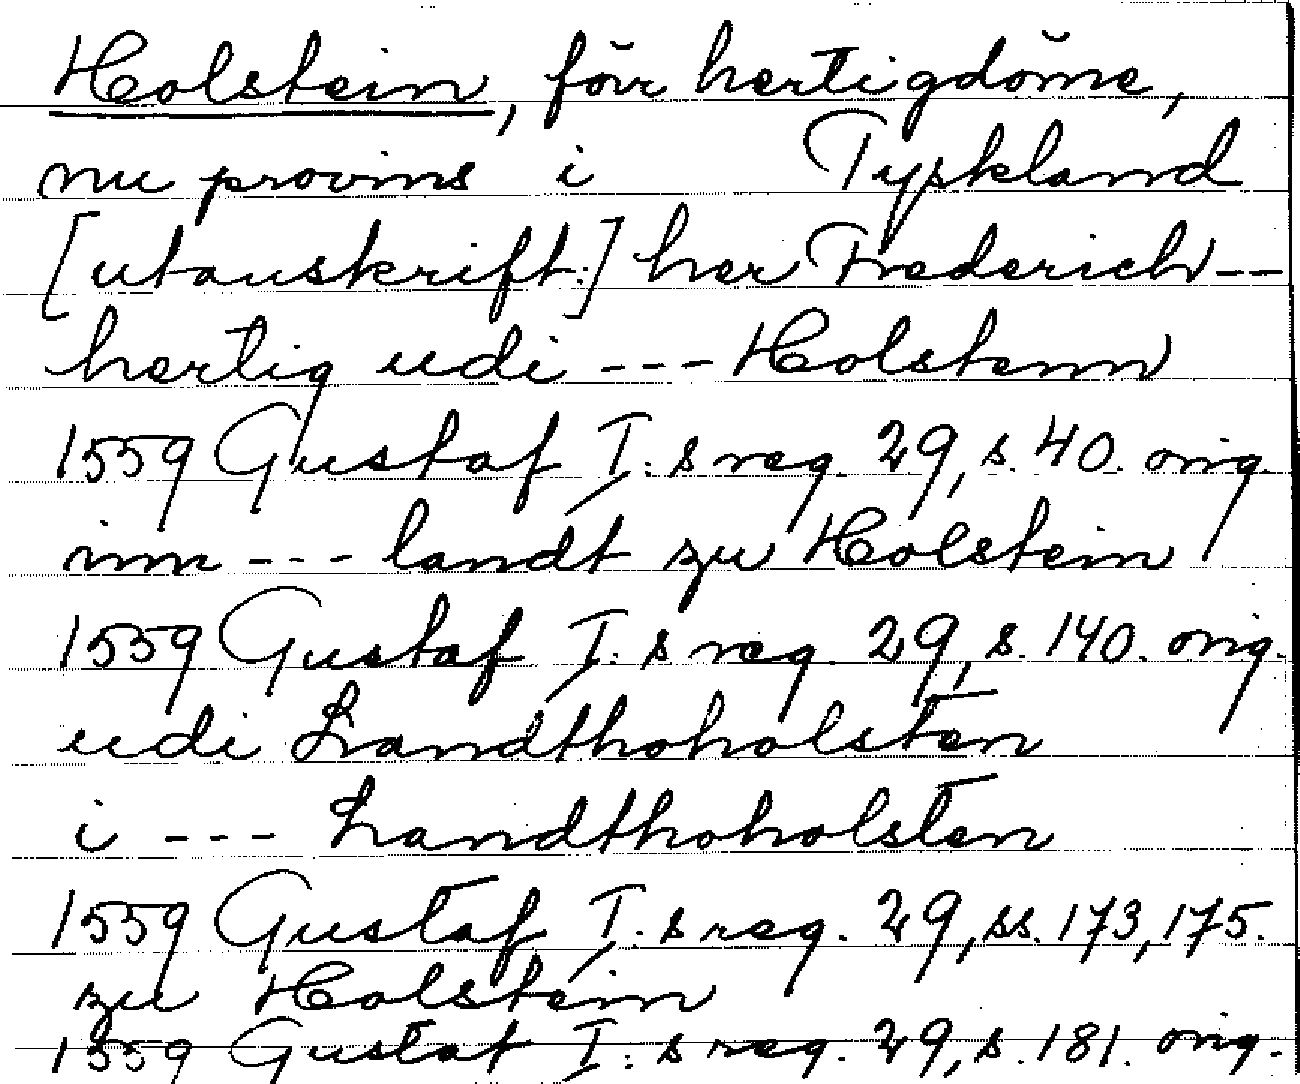 Holstein, förr hertigdöme,
nu provins i Tyskland
[utanskrift:] her Frederich --
hertig udi --- Holstenn
1559 Gustaf I:s reg. 29, s. 40. orig.
inn --- landt zu Holstein
1559 Gustaf I:s reg. 29, s. 140. orig.
udi Landthoholsten
i --- Landthoholsten
1559 Gustaf I:s reg. 29, ss. 173, 175.
zu Holstein
1559 Gustaf I:s reg. 29, s. 181. orig.